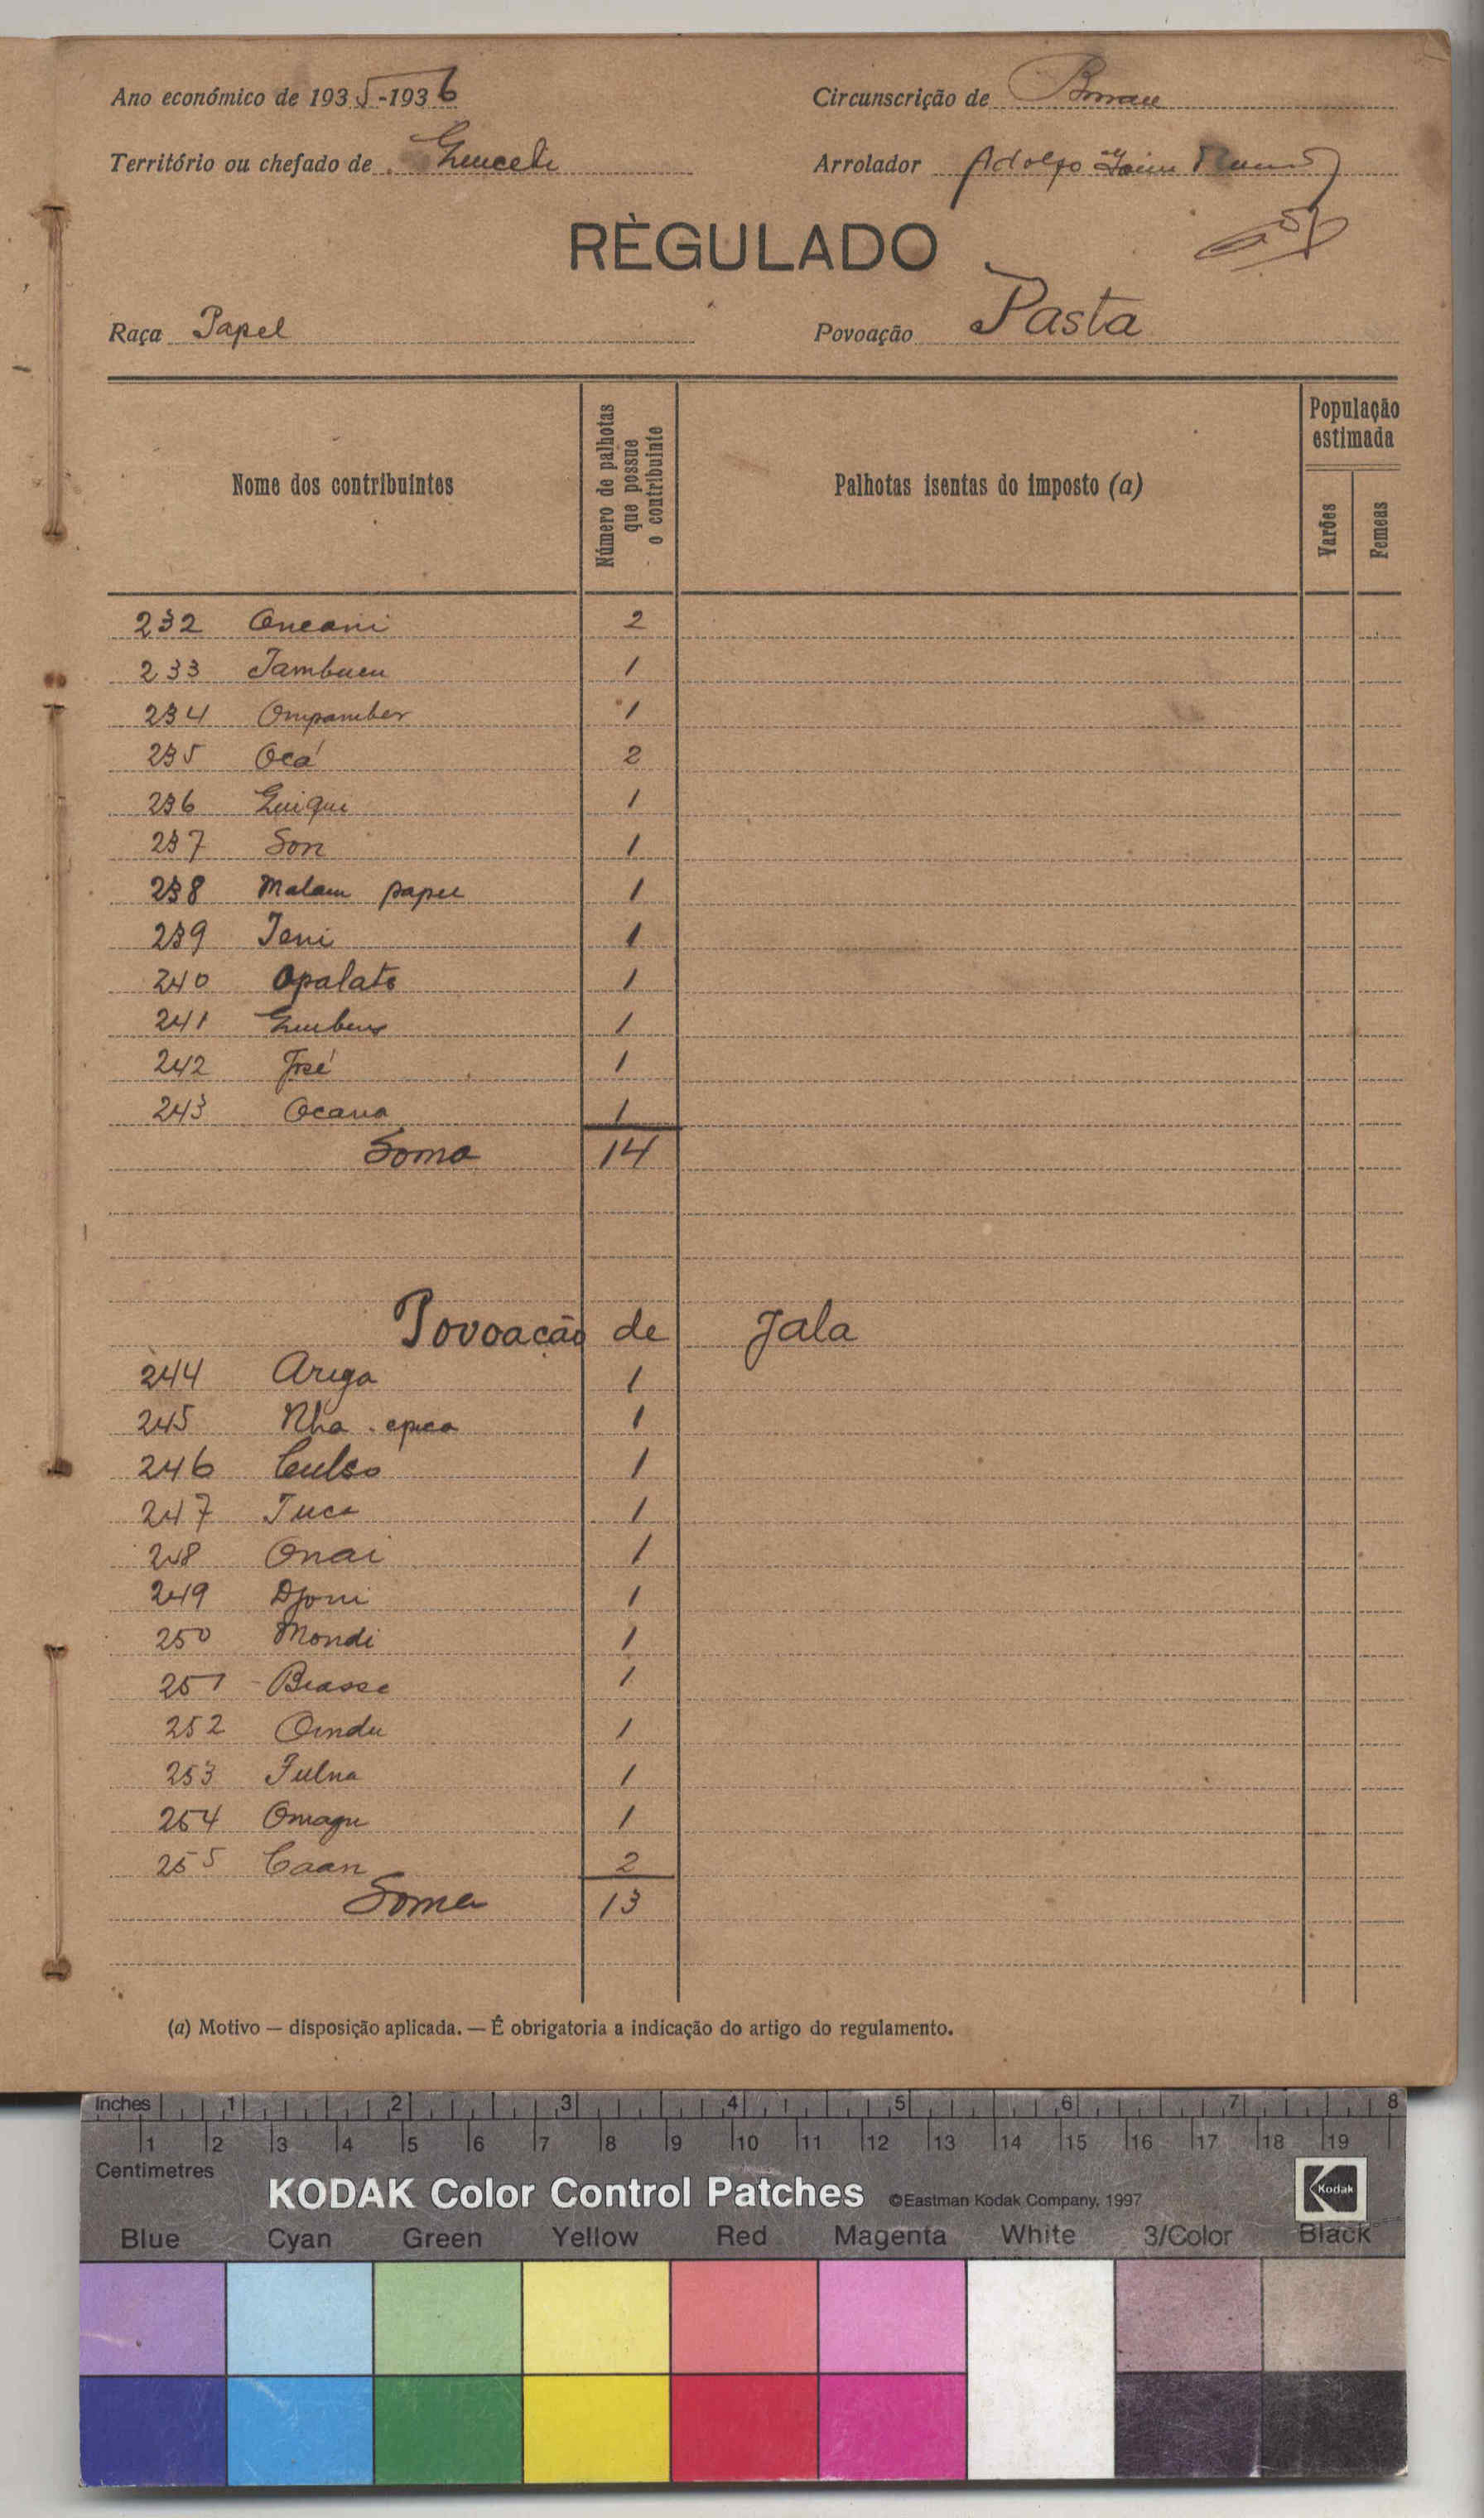 Ano económico de 1935-1936
Circunscrição de
Território ou chefado de
Arrolador Adolfo
RÈGULADO
Raça Papel
Povoação Pasta
Nome dos contribuintes
Número de palhotas que possue o contribuinte
Palhotas isentas do imposto (a)
População estimada
Varões
Femeas
232 Oncani 2
233 Tambucu 1
234 Ompamber 1
235 Ocá 2
236 Quiqui 1
237 Son 1
238 Malam papel 1
239 Teni 1
240 Opalato 1
241 1
242 José 1
243 Ocana 1
Soma 14
Povoacão de Jala
244 Ariga 1
245 Nha 1
246 Culso 1
247 Tuca 1
248 Onai 1
249 Djoni 1
250 Mondi 1
251 Biasse 1
252 Oindu 1
253 Julna 1
254 Omagu 1
255 Caan 2
Soma 13
(a) Motivo — disposição aplicada. — É obrigatoria a indicação do artigo do regulamento.
Inches 1 2 3 4 5 6 7 8
1 2 3 4 5 6 7 8 9 10 11 12 13 14 15 16 17 18 19
Centimetres
KODAK Color Control Patches ©Eastman Kodak Company, 1997 Kodak
Blue Cyan Green Yellow Red Magenta White 3/Color Black